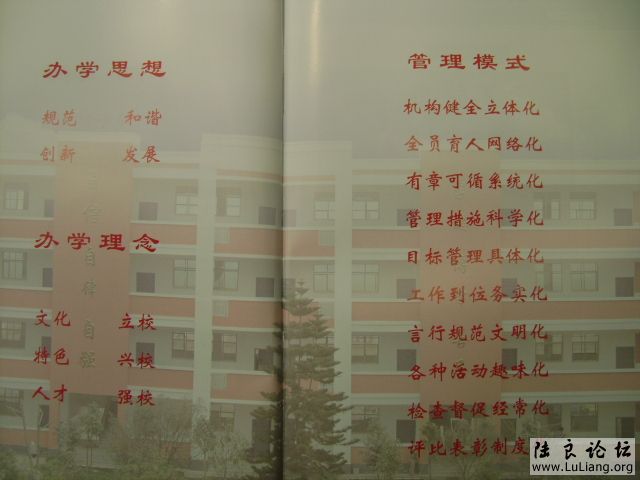 办学思想
规范 和谐
创新 发展
办学理念
文化 立校
特色 兴校
人才 强校
管理模式
机构健全立体化
全员育人网络化
有章可循系统化
管理措施科学化
目标管理具体化
工作到位务实化
言行规范文明化
各种活动趣味化
检查督促经常化
评比表彰制度
陆良论坛
www.LuLiang.org